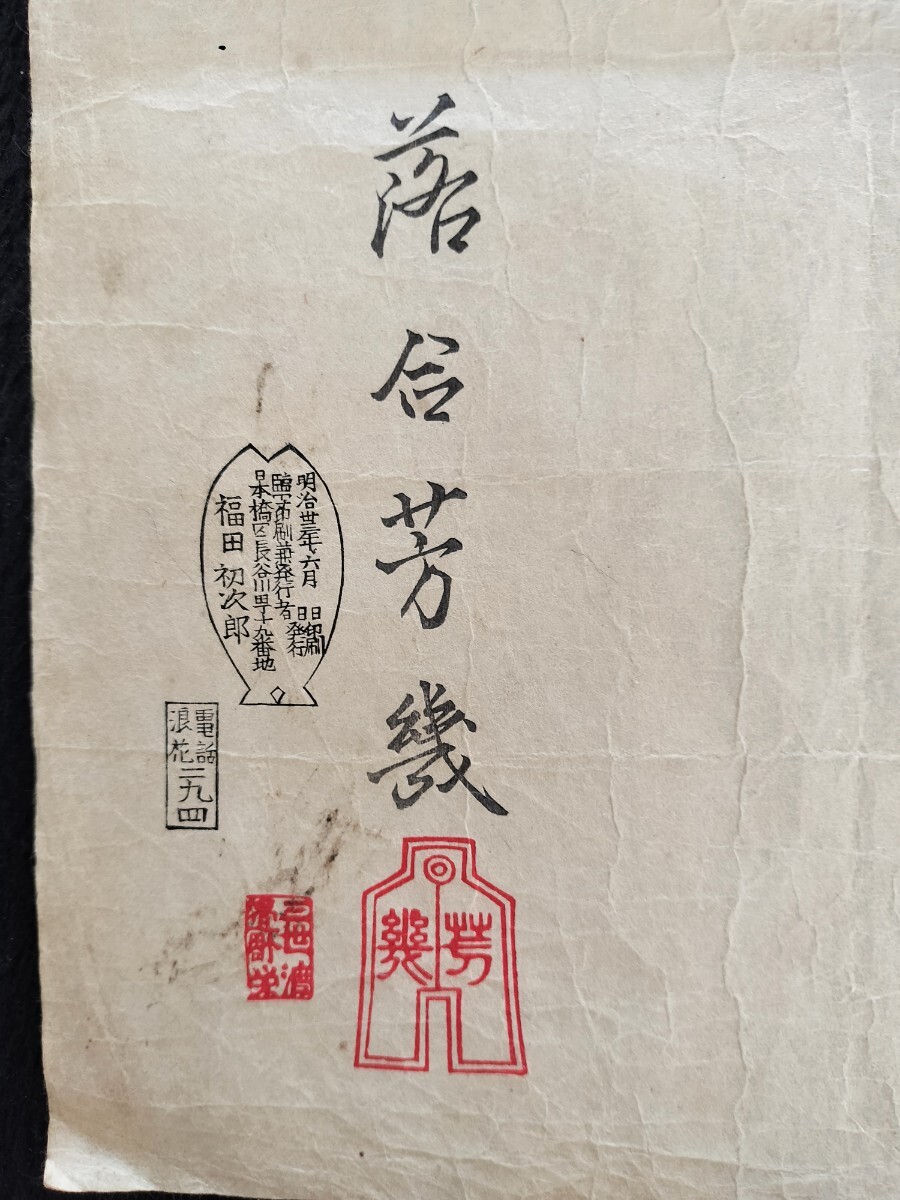 落合芳幾
明治卅三年六月 日印刷
日発行
印刷兼発行者
日本橋区長谷川町十九番地
福田初次郎
電話
浪花二九四
芳幾
三世渡